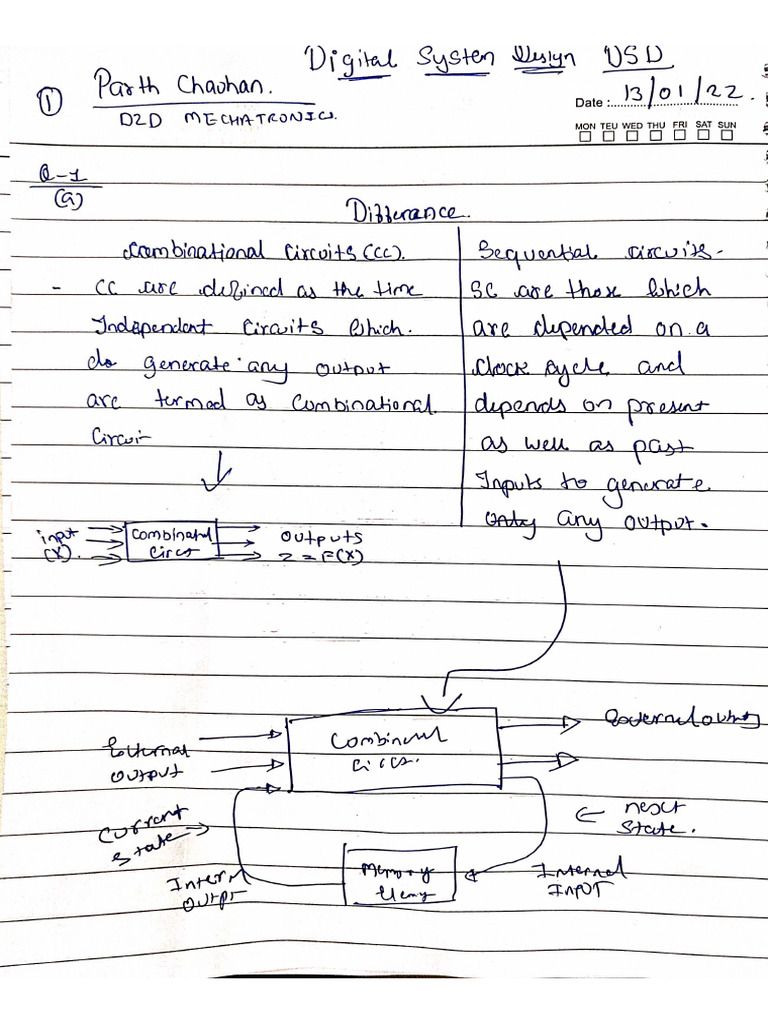 Digital System Design DSD
① Parth Chauhan.
D2D MECHATRONICS.
Date : 13/01/22.
MON TEU WED THU FRI SAT SUN
Q-1
(a)
Differance.
Combinational Circuits (CC).
- CC are defined as the time
Independent Circuits which.
do generate any output
are termed as Combinational
Circui-
Sequential circuits-
SC are those which
are depended on a
clock cycle and
depends on present
as well as past
Inputs to generate
only any output.
input
(X).
Combinatnl
Circt
Outputs
Z = F(X)
External
output
Combinenl
External
Current
state
next
state.
Memory
Intern
output
Internal
INPUT